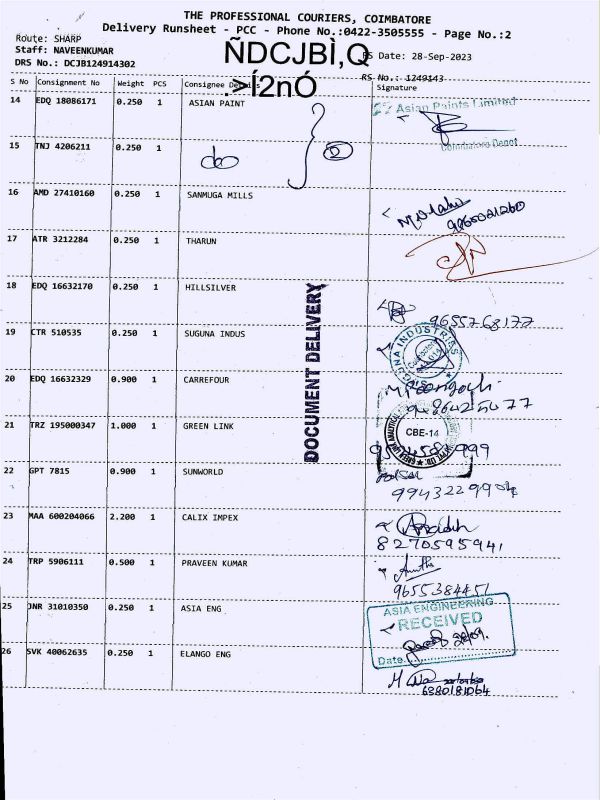 THE PROFESSIONAL COURIERS, COIMBATORE
Delivery Runsheet - PCC - Phone No.:0422-3505555 - Page No.:2
Route: SHARP
Staff: NAVEENKUMAR
DRS No.: DCJB124914302
ÑDCJBÌ,Q
.>Í2nÓ
S Date: 28-Sep-2023
RS No.: 1249143
S No Consignment No Weight PCS Consignee Details Signature
14 EDQ 18086171 0.250 1 ASIAN PAINT
Asian Paints Limited
Coimbatore Depot
15 TNJ 4206211 0.250 1
do
16 AMD 27410160 0.250 1 SANMUGA MILLS
9865021260
17 ATR 3212284 0.250 1 THARUN
18 EDQ 16632170 0.250 1 HILLSILVER
9655768177
DOCUMENT DELIVERY
19 CTR 510535 0.250 1 SUGUNA INDUS
SUGUNA INDUSTRIES
20 EDQ 16632329 0.900 1 CARREFOUR
21 TRZ 195000347 1.000 1 GREEN LINK
CBE-14
22 GPT 7815 0.900 1 SUNWORLD
23 MAA 600204066 2.200 1 CALIX IMPEX
8270595941
24 TRP 5906111 0.500 1 PRAVEEN KUMAR
9655384451
25 JNR 31010350 0.250 1 ASIA ENG
ASIA ENGINEERING
RECEIVED
Date
26 SVK 40062635 0.250 1 ELANGO ENG
6380181064